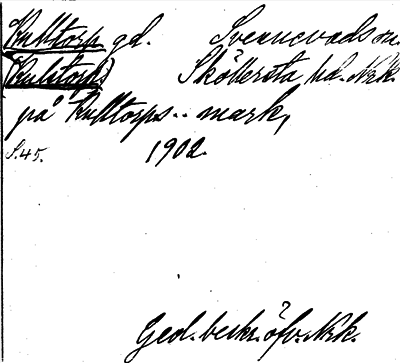 Kulltorp gd. Svennevads sn.
(Kulltorps) Sköllersta hd. Nrk.
på Kulltorps.. mark,
S.45. 1902.
Geol. beskr. öfv. Nrk.